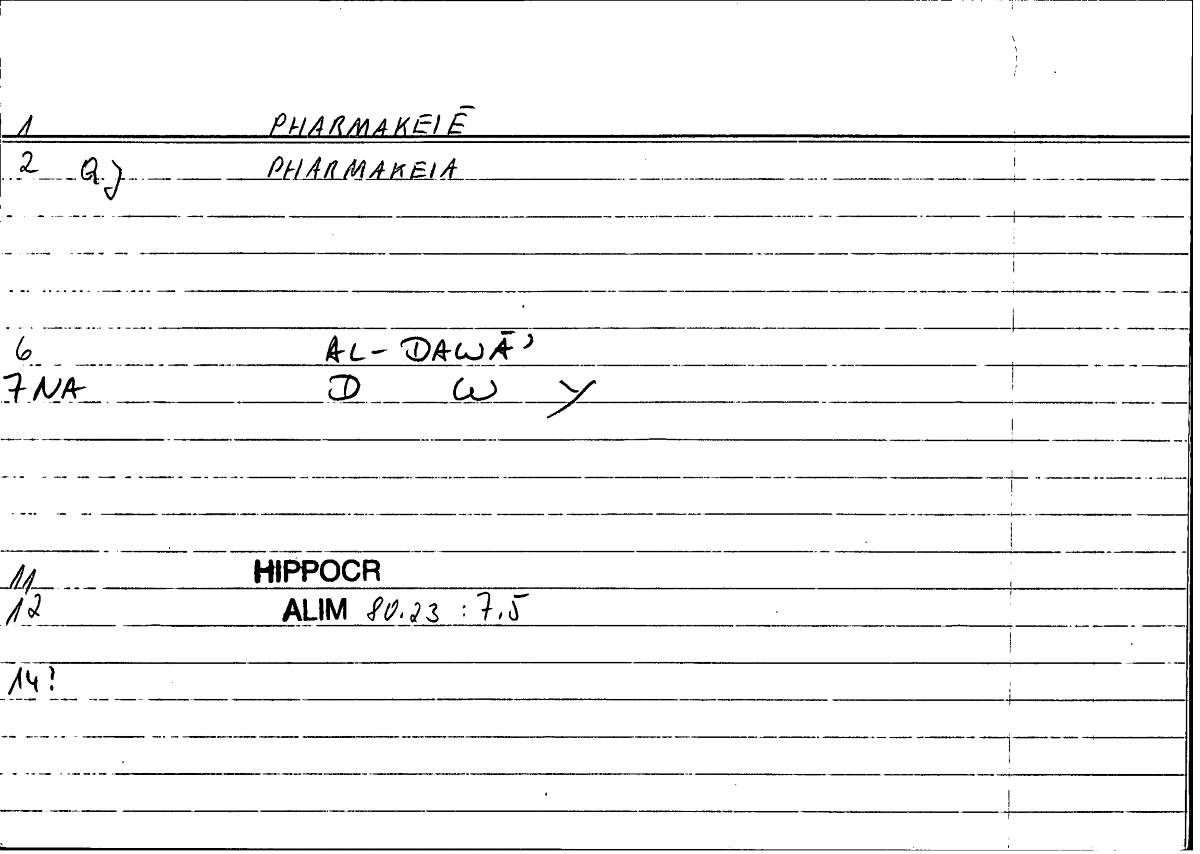 1 PHARMAKEIĒ
2 Q.} PHARMAKEIA
6 AL-DAWĀʾ
7 NA D W Y
11 HIPPOCR
12 ALIM 80.23 : 7.5
14?